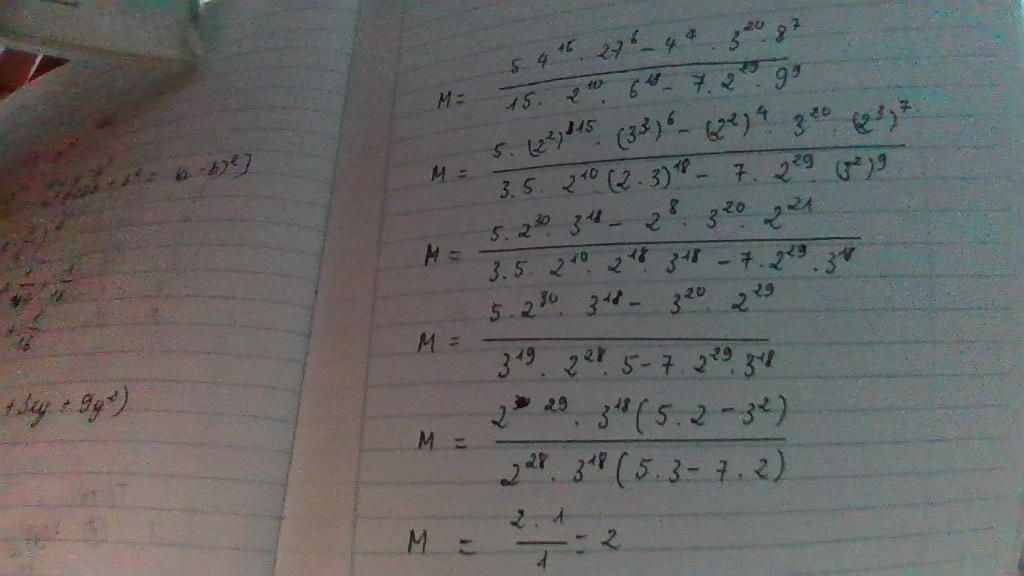 M = \frac{5 \cdot 4^{15} \cdot 27^6 - 4^4 \cdot 3^{20} \cdot 8^7}{15 \cdot 2^{10} \cdot 6^{18} - 7 \cdot 2^{29} \cdot 9^9}
M = \frac{5 \cdot (2^2)^{15} \cdot (3^3)^6 - (2^2)^4 \cdot 3^{20} \cdot (2^3)^7}{3 \cdot 5 \cdot 2^{10} \cdot (2 \cdot 3)^{18} - 7 \cdot 2^{29} \cdot (3^2)^9}
M = \frac{5 \cdot 2^{30} \cdot 3^{18} - 2^8 \cdot 3^{20} \cdot 2^{21}}{3 \cdot 5 \cdot 2^{10} \cdot 2^{18} \cdot 3^{18} - 7 \cdot 2^{29} \cdot 3^{18}}
M = \frac{5 \cdot 2^{30} \cdot 3^{18} - 3^{20} \cdot 2^{29}}{3^{19} \cdot 2^{28} \cdot 5 - 7 \cdot 2^{29} \cdot 3^{18}}
M = \frac{2^{29} \cdot 3^{18} (5 \cdot 2 - 3^2)}{2^{28} \cdot 3^{18} (5 \cdot 3 - 7 \cdot 2)}
M = \frac{2 \cdot 1}{1} = 2
+ 9y^2)